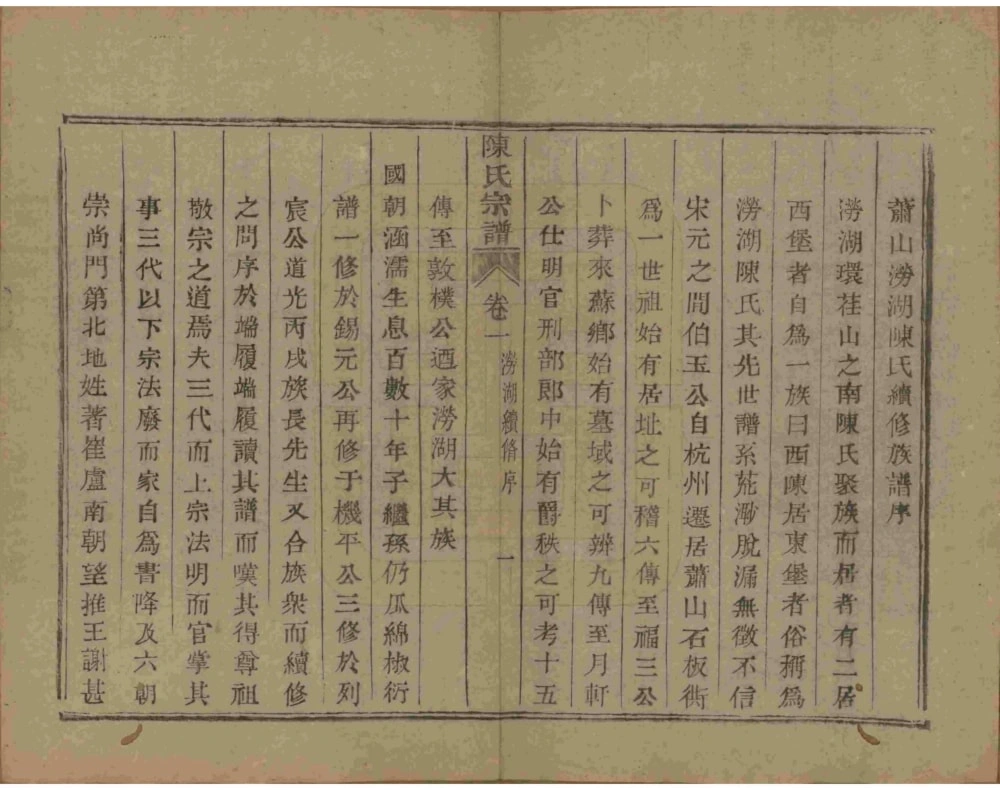 蕭山澇湖陳氏續修族譜序
澇湖環荏山之南陳氏聚族而居者有二居
西堡者自爲一族曰西陳居東堡者俗稱爲
澇湖陳氏其先世譜系茺渺脫漏無徵不信
宋元之間伯玉公自杭州遷居蕭山石板衖
爲一世祖始有居址之可稽六傳至福三公
卜葬來蘇鄉始有墓域之可辨九傳至月軒
公仕明官刑部郎中始有爵秩之可考十五
陳氏宗譜 卷一 澇湖續脩序 一
傳至敦樸公迺家澇湖大其族
國朝涵濡生息百數十年子繼孫仍瓜綿椒衍
譜一修於錫元公再修于機平公三修於列
宸公道光丙戌族長先生又合族衆而續修
之問序於端履端履讀其譜而嘆其得尊祖
敬宗之道焉夫三代而上宗法明而官掌其
事三代以下宗法廢而家自爲書降及六朝
崇尚門第北地姓著崔盧南朝望推王謝甚